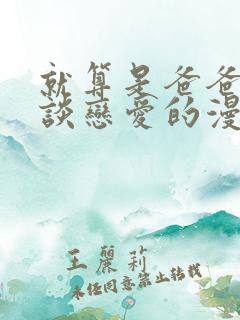 就算是爸爸
談戀愛的漫
王麗莉
未經同意禁止轉載